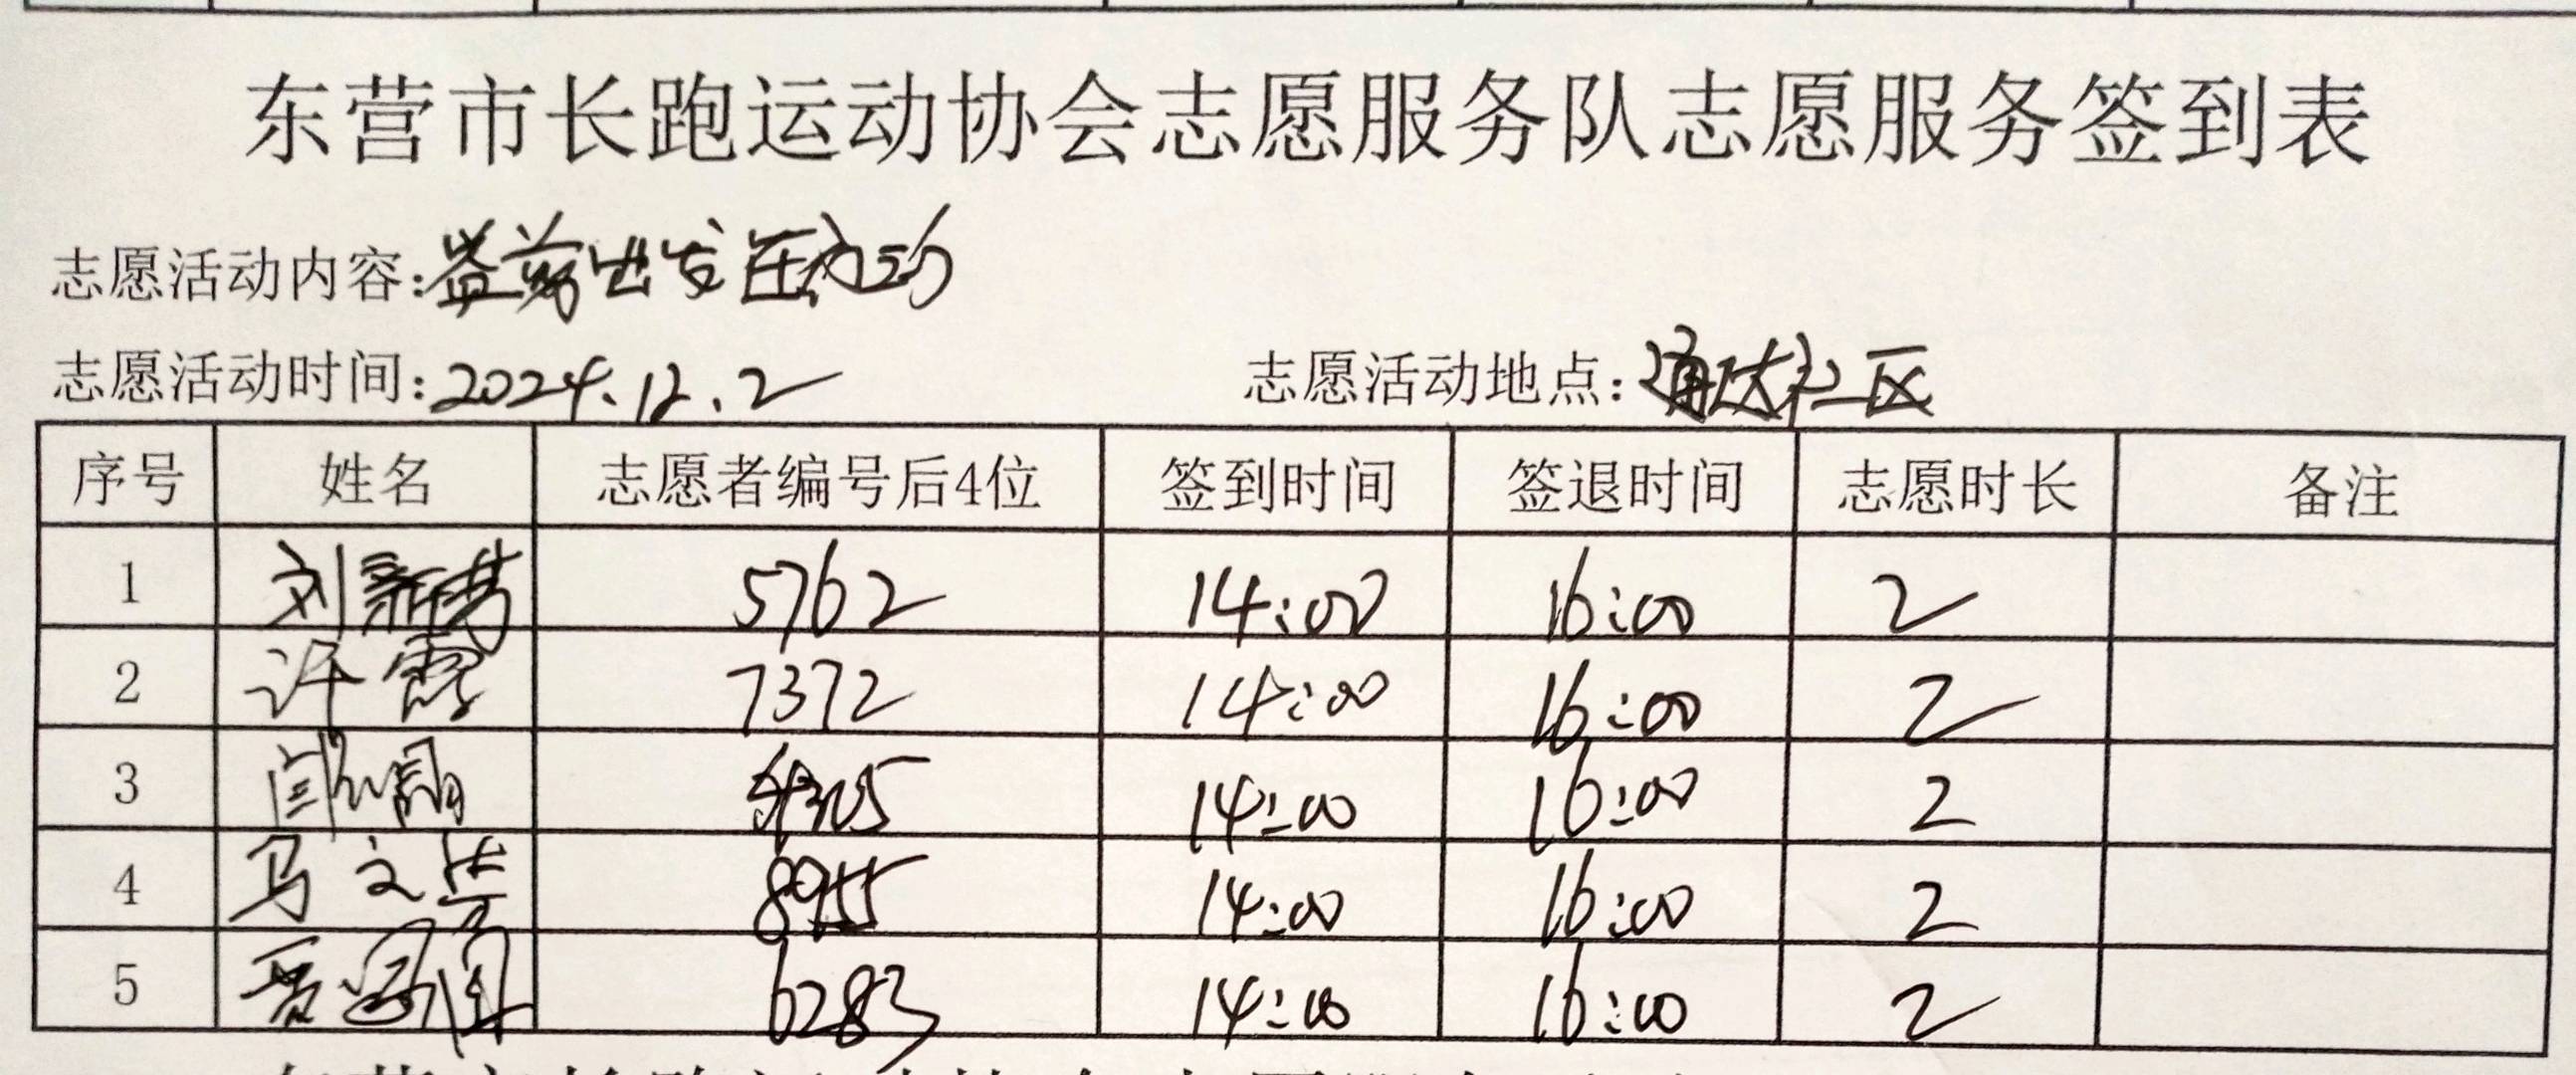 东营市长跑运动协会志愿服务队志愿服务签到表
志愿活动内容:益前出发在行动
志愿活动时间:2024.12.2 志愿活动地点:通达社区
序号 姓名 志愿者编号后4位 签到时间 签退时间 志愿时长 备注
1 刘新英 5762 14:00 16:00 2
2 许霞 7372 14:00 16:00 2
3 14:00 16:00 2
4 马文芳 8955 14:00 16:00 2
5 6283 14:00 16:00 2